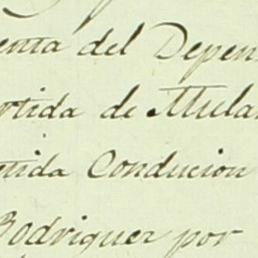 enta del Depen
rtida de Mula
tida Conducion
Rodriguez por